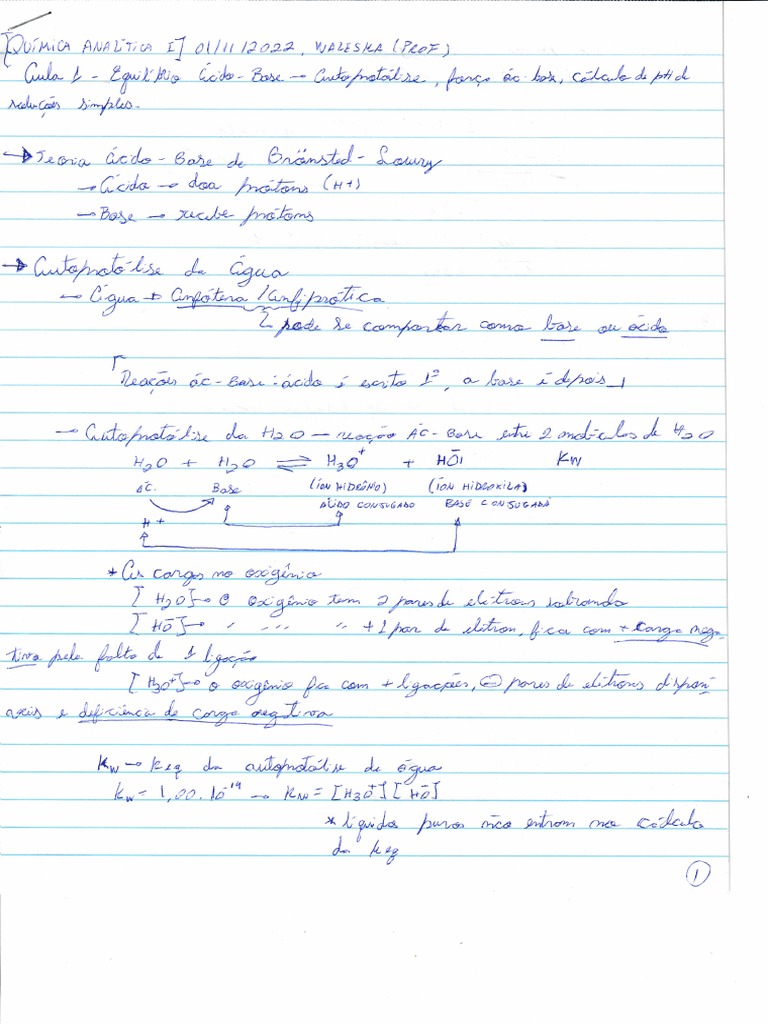 [QUÍMICA ANALÍTICA I] 01/11/2022, WALESKA (PROF)
Aula 1 - Equilíbrio Ácido-Base → Autoprotólise, força ác. base, cálculo de pH de
soluções simples.
→ Teoria Ácido-Base de Brönsted-Lowry
→ Ácido → doa prótons (H+)
→ Base → recebe prótons
→ Autoprotólise da Água
→ Água → Anfótera / Anfiprótica
↳ pode se comportar como base ou ácido
Reações ác-Base: ácido é escrito 1º, a base é depois
→ Autoprotólise da H2O — reação ÁC-Base entre 2 moléculas de H2O
H2O + H2O ⇌ H3O+ + HŌ| KW
ÁC. Base (ÍON HIDRÔNIO) (ÍON HIDROXILA)
ÁCIDO CONJUGADO BASE CONJUGADA
H+
* As cargas no oxigênio
[H2O] → O oxigênio tem 2 pares de elétrons sobrando
[HŌ] → " " " " +1 par de elétron, fica com + carga nega-
tiva pela falta de 1 ligação
[H3O+] → o oxigênio fica com + ligações, ⊖ pares de elétrons dispon-
íveis e deficiência de carga negativa
Kw → Keq da autoprotólise de água
Kw = 1,00.10^-14 → Kw = [H3O+][HŌ]
* líquidos puros não entram no cálculo
da Keq
1